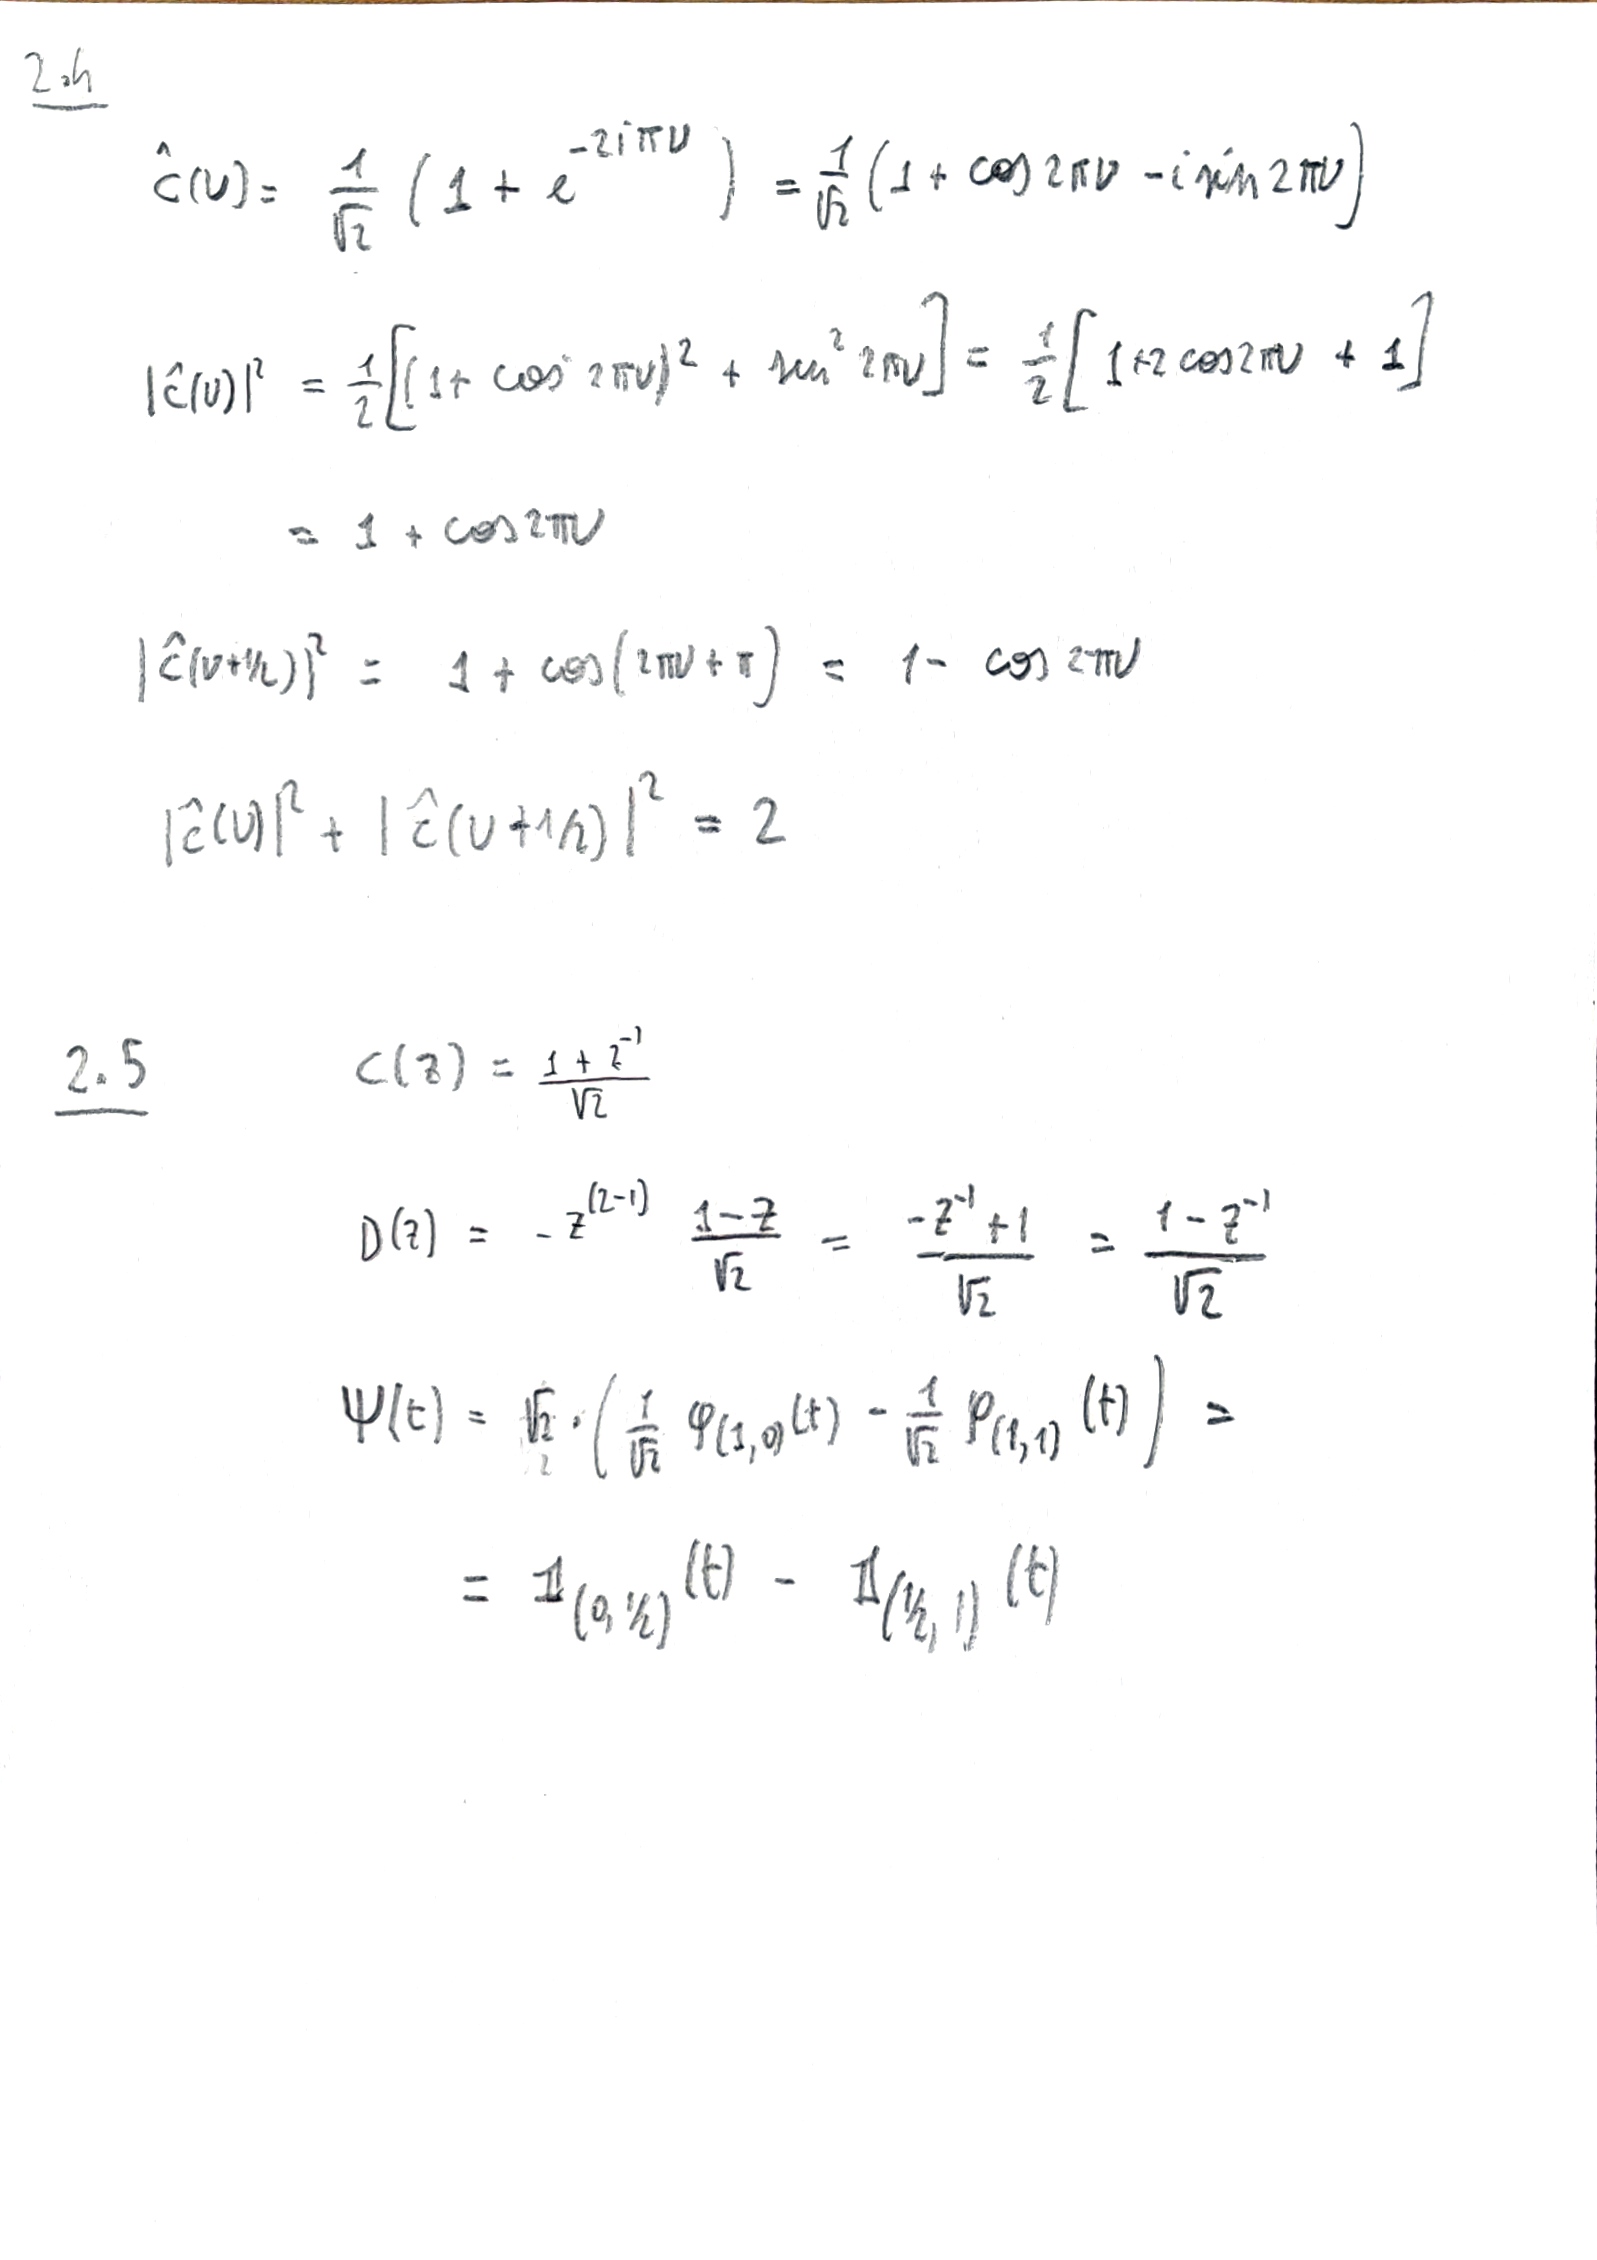 2.4
ĉ(ν) = 1/√2 (1 + e^{-2iπν}) = 1/√2 (1 + cos 2πν - i sin 2πν)
|ĉ(ν)|² = 1/2 [(1 + cos 2πν)² + sin² 2πν] = 1/2 [1+2 cos2πν + 1]
= 1 + cos 2πν
|ĉ(ν+1/2)|² = 1 + cos(2πν + π) = 1 - cos 2πν
|ĉ(ν)|² + |ĉ(ν+1/2)|² = 2
2.5 C(z) = (1 + z^{-1})/√2
D(z) = -z^{(2-1)} (1-z)/√2 = (-z^{-1}+1)/√2 = (1 - z^{-1})/√2
Ψ(t) = √2 · (1/√2 φ_{(1,0)}(t) - 1/√2 φ_{(1,1)}(t)) =
= 𝟙_{(0,1/2)}(t) - 𝟙_{(1/2,1)}(t)